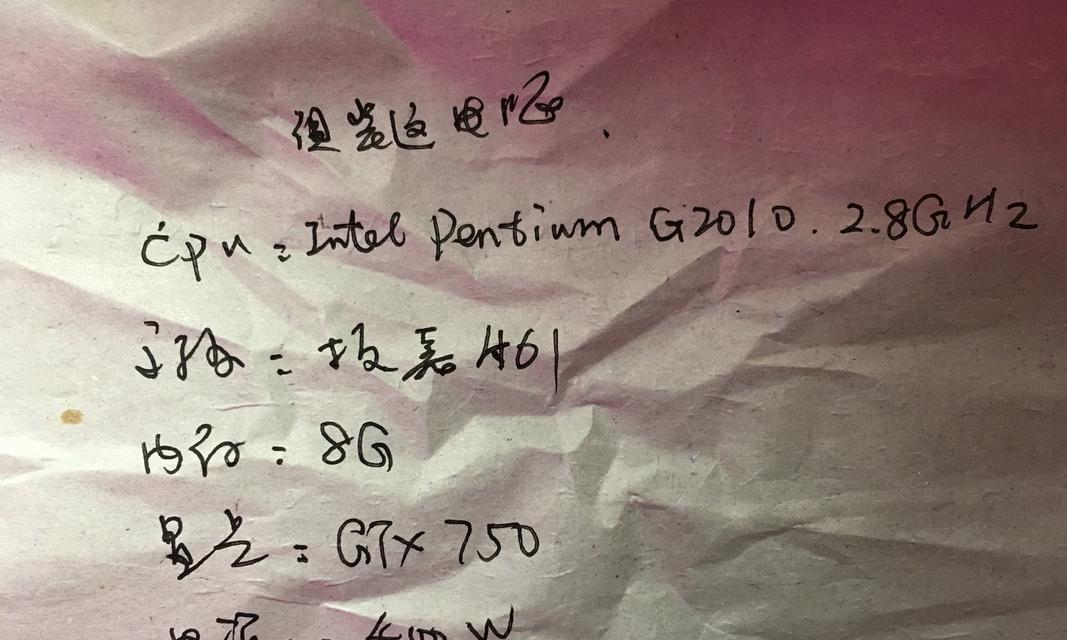 组装这电脑.
Cpu:Intel Pentium G2010. 2.8GHz
主板:技嘉H61
内存:8G
显卡:GTX 750
电源:400W